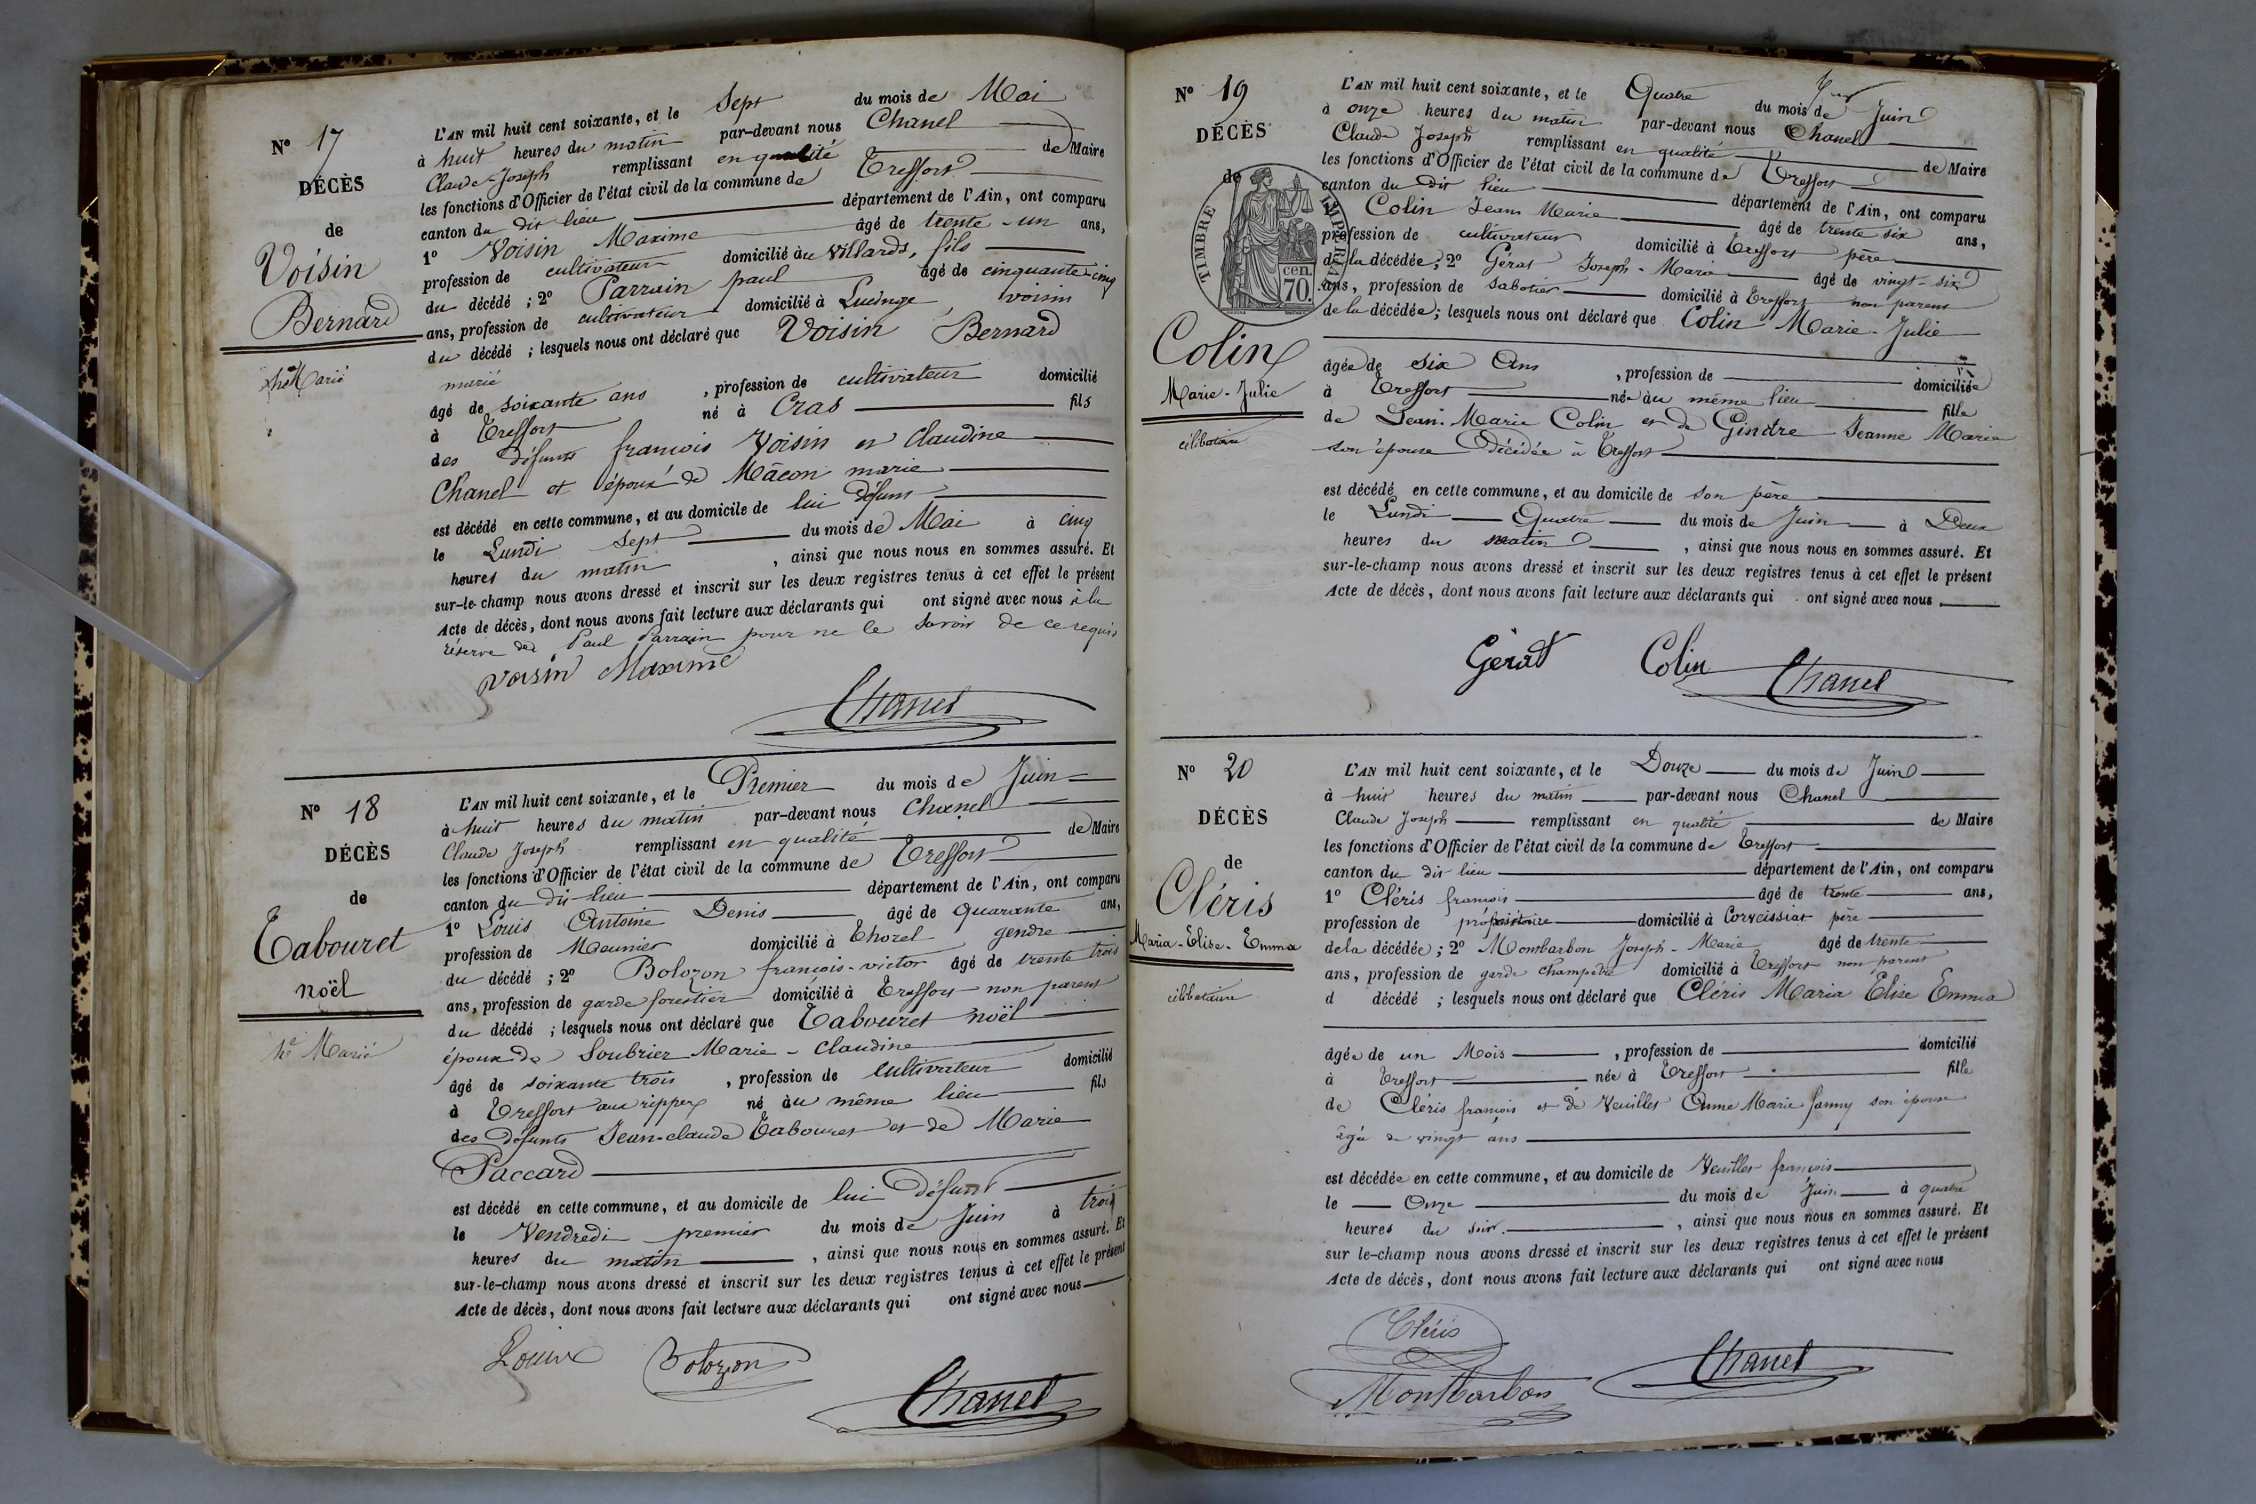 N° 17
DÉCÈS
de
Voisin
Bernard
Marié
L'AN mil huit cent soixante, et le Sept du mois de Mai
à huit heures du matin par-devant nous Chanel
Claude-Joseph remplissant en qualité de Maire
les fonctions d'Officier de l'état civil de la commune de Treffort
canton du dit lieu département de l'Ain, ont comparu
1° Voisin Maxime âgé de trente-un ans,
profession de cultivateur domicilié au Villards, fils
du décédé ; 2° Parrain paul âgé de cinquante-cinq
ans, profession de cultivateur domicilié à voisin
du décédé ; lesquels nous ont déclaré que Voisin Bernard
marié
âgé de soixante ans, profession de cultivateur domicilié
à Treffort né à Cras fils
des défunts françois Voisin et Claudine
Chanel et époux de Mâcon marie
est décédé en cette commune, et au domicile de lui défunt
le Lundi Sept du mois de Mai à cinq
heures du matin, ainsi que nous nous en sommes assuré. Et
sur-le-champ nous avons dressé et inscrit sur les deux registres tenus à cet effet le présent
Acte de décès, dont nous avons fait lecture aux déclarants qui ont signé avec nous à la
réserve de Paul Parrain pour ne le savoir de ce requis
Voisin Maxime
Chanel
N° 18
DÉCÈS
de
Tabouret
noël
Marié
L'AN mil huit cent soixante, et le Premier du mois de Juin
à huit heures du matin par-devant nous Chanel
Claude Joseph remplissant en qualité de Maire
les fonctions d'Officier de l'état civil de la commune de Treffort
canton du dit lieu département de l'Ain, ont comparu
1° Louis Antoine Denis âgé de quarante ans,
profession de Meunier domicilié à Thorel gendre
du décédé ; 2° Bolozon françois-victor âgé de trente trois
ans, profession de garde forestier domicilié à Treffort non parent
du décédé ; lesquels nous ont déclaré que Tabouret noël
époux de Soubrier Marie-Claudine
âgé de soixante trois, profession de cultivateur domicilié
à Treffort aux rippes né au même lieu fils
des défunts Jean-claude Tabouret et de Marie
Paccard
est décédé en cette commune, et au domicile de lui défunt
le Vendredi premier du mois de Juin à trois
heures du matin, ainsi que nous nous en sommes assuré. Et
sur-le-champ nous avons dressé et inscrit sur les deux registres tenus à cet effet le présent
Acte de décès, dont nous avons fait lecture aux déclarants qui ont signé avec nous
Louis
Bolozon
Chanel
N° 19
DÉCÈS
de
TIMBRE IMPÉRIAL
70 cen.
Colin
Marie-Julie
célibataire
L'AN mil huit cent soixante, et le Quatre du mois de Juin
à onze heures du matin par-devant nous Chanel
Claude Joseph remplissant en qualité de Maire
les fonctions d'Officier de l'état civil de la commune de Treffort
canton du dit lieu département de l'Ain, ont comparu
1° Colin Jean Marie âgé de trente six ans,
profession de cultivateur domicilié à Treffort père
de la décédée ; 2° Gérat Joseph-Marie âgé de vingt-six
ans, profession de sabotier domicilié à Treffort non parent
de la décédée ; lesquels nous ont déclaré que Colin Marie-Julie
âgée de six Ans, profession de domiciliée
à Treffort née au même lieu fille
de Jean-Marie Colin et de Gindre Jeanne Marie
son épouse Décédée à Treffort
est décédé en cette commune, et au domicile de son père
le Lundi Quatre du mois de Juin à Deux
heures du matin, ainsi que nous nous en sommes assuré. Et
sur-le-champ nous avons dressé et inscrit sur les deux registres tenus à cet effet le présent
Acte de décès, dont nous avons fait lecture aux déclarants qui ont signé avec nous
Gérat
Colin
Chanel
N° 20
DÉCÈS
de
Cléris
Maria-Elise-Emma
célibataire
L'AN mil huit cent soixante, et le Douze du mois de Juin
à huit heures du matin par-devant nous Chanel
Claude Joseph remplissant en qualité de Maire
les fonctions d'Officier de l'état civil de la commune de Treffort
canton du dit lieu département de l'Ain, ont comparu
1° Cléris françois âgé de trente ans,
profession de domicilié à Corveissiat père
de la décédée ; 2° Montbarbon Joseph-Marie âgé de trente
ans, profession de garde champêtre domicilié à Treffort non parent
d décédé ; lesquels nous ont déclaré que Cléris Maria Elise Emma
âgée de un Mois, profession de domicilié
à Treffort née à Treffort fille
de Cléris françois et de Veuillet Anne Marie fanny son épouse
âgée de vingt ans
est décédée en cette commune, et au domicile de Veuillet françois
le Onze du mois de Juin à quatre
heures du soir, ainsi que nous nous en sommes assuré. Et
sur le-champ nous avons dressé et inscrit sur les deux registres tenus à cet effet le présent
Acte de décès, dont nous avons fait lecture aux déclarants qui ont signé avec nous
Cléris
Montbarbon
Chanel